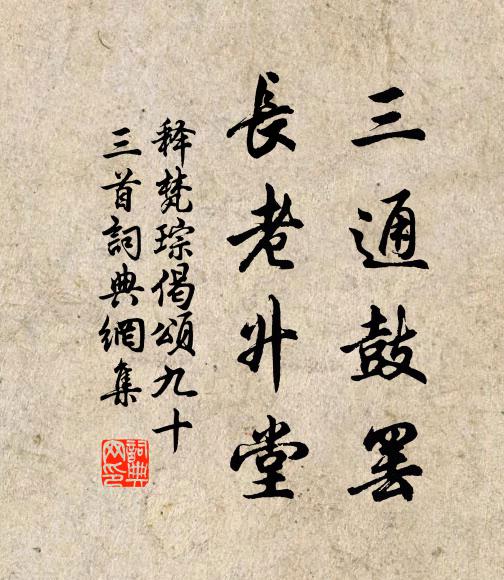 三通鼓罢
長老升堂
释梵琮偈頌九十
三首詞典網集
詞典網印